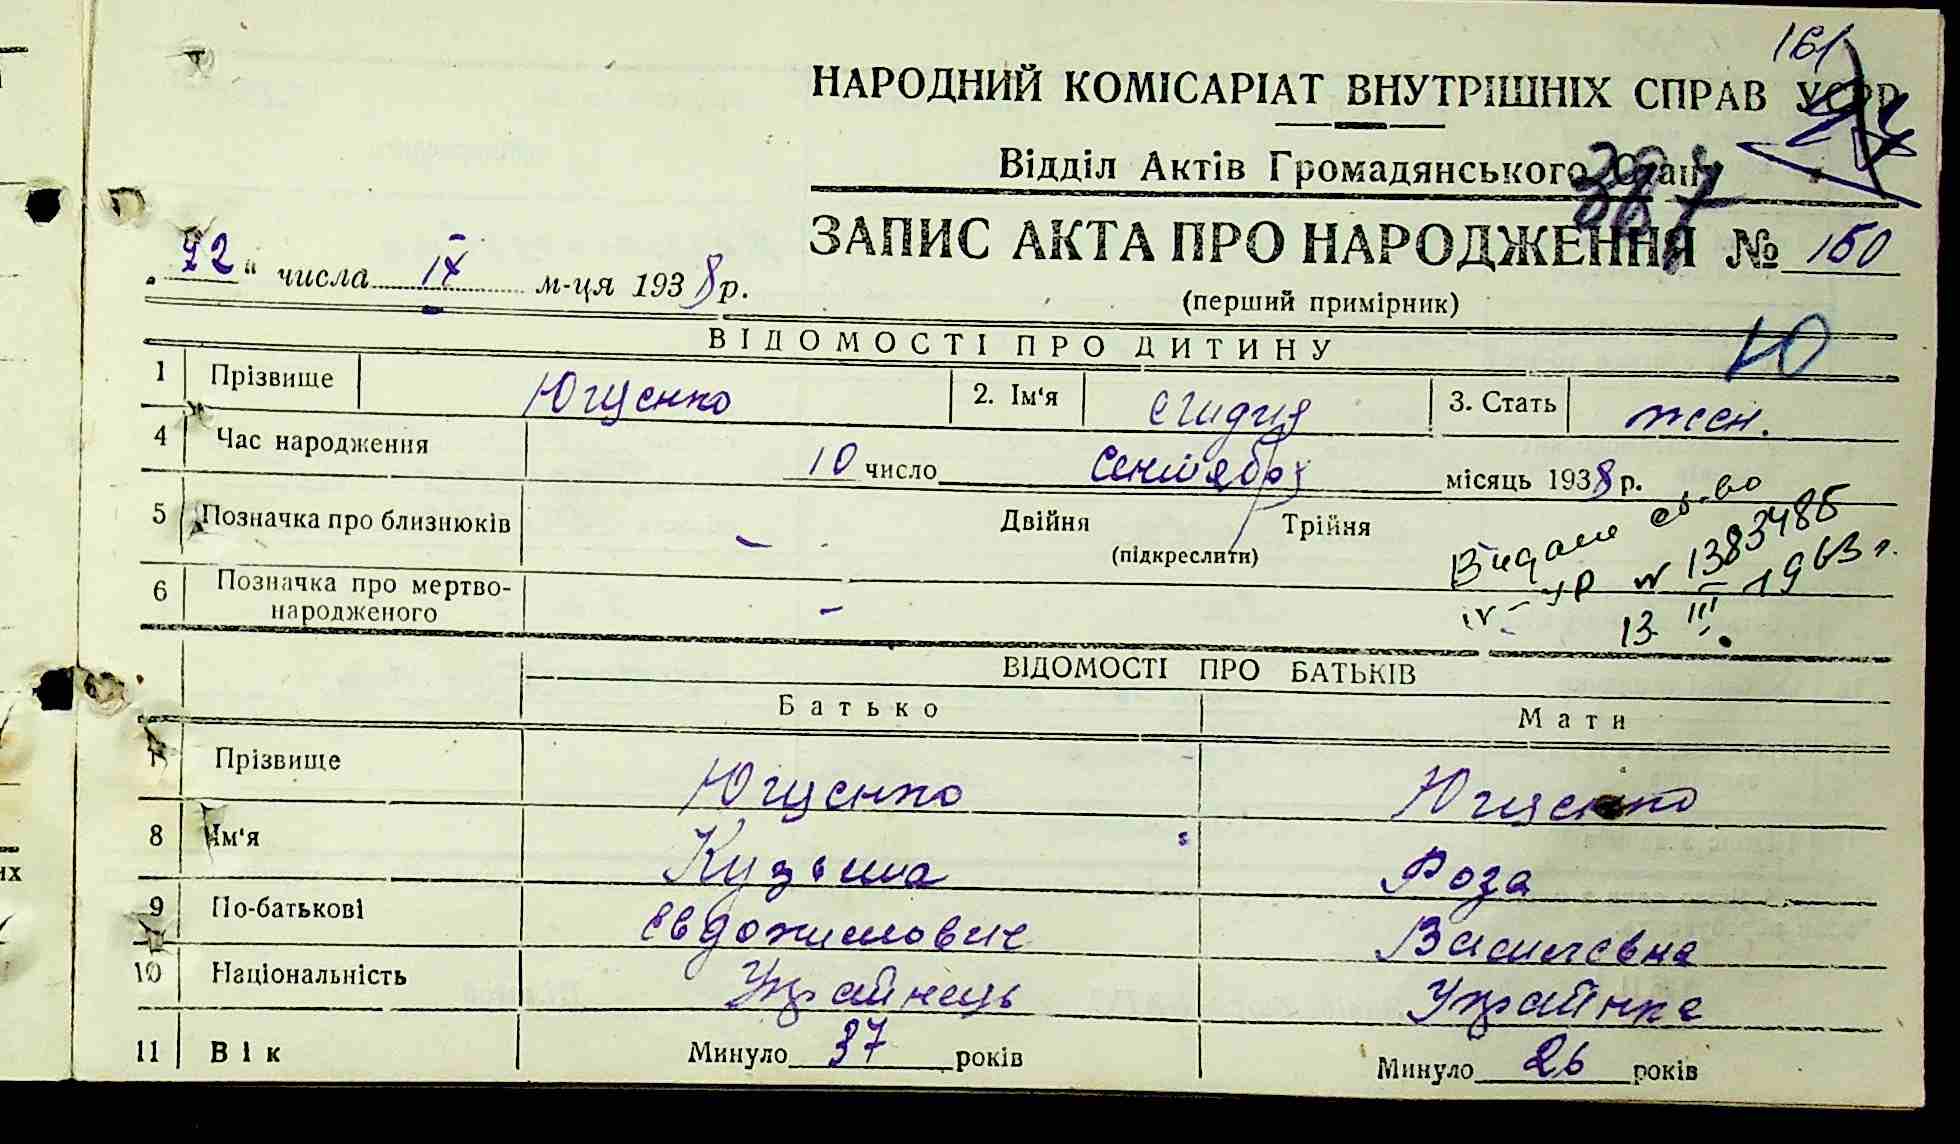 161
НАРОДНИЙ КОМІСАРІАТ ВНУТРІШНІХ СПРАВ УСРР
Відділ Актів Громадянського Стану
387
ЗАПИС АКТА ПРО НАРОДЖЕННЯ № 150
(перший примірник)
„22“ числа IX м-ця 1938 р.
Ю
ВІДОМОСТІ ПРО ДИТИНУ
1 Прізвище Ющенко 2. Ім'я 3. Стать жен.
4 Час народження 10 число Сентября місяць 1938 р.
5 Позначка про близнюків - Двійня Трійня
(підкреслити)
6 Позначка про мертво-
народженого -
Видане св-во
IV-УР № 1383485
13 III 1963 г.
ВІДОМОСТІ ПРО БАТЬКІВ
Батько Мати
7 Прізвище Ющенко Ющенко
8 Ім'я Кузьма Роза
9 По-батькові Василевна
10 Національність Українець Українка
11 Вік Минуло 37 років Минуло 26 років